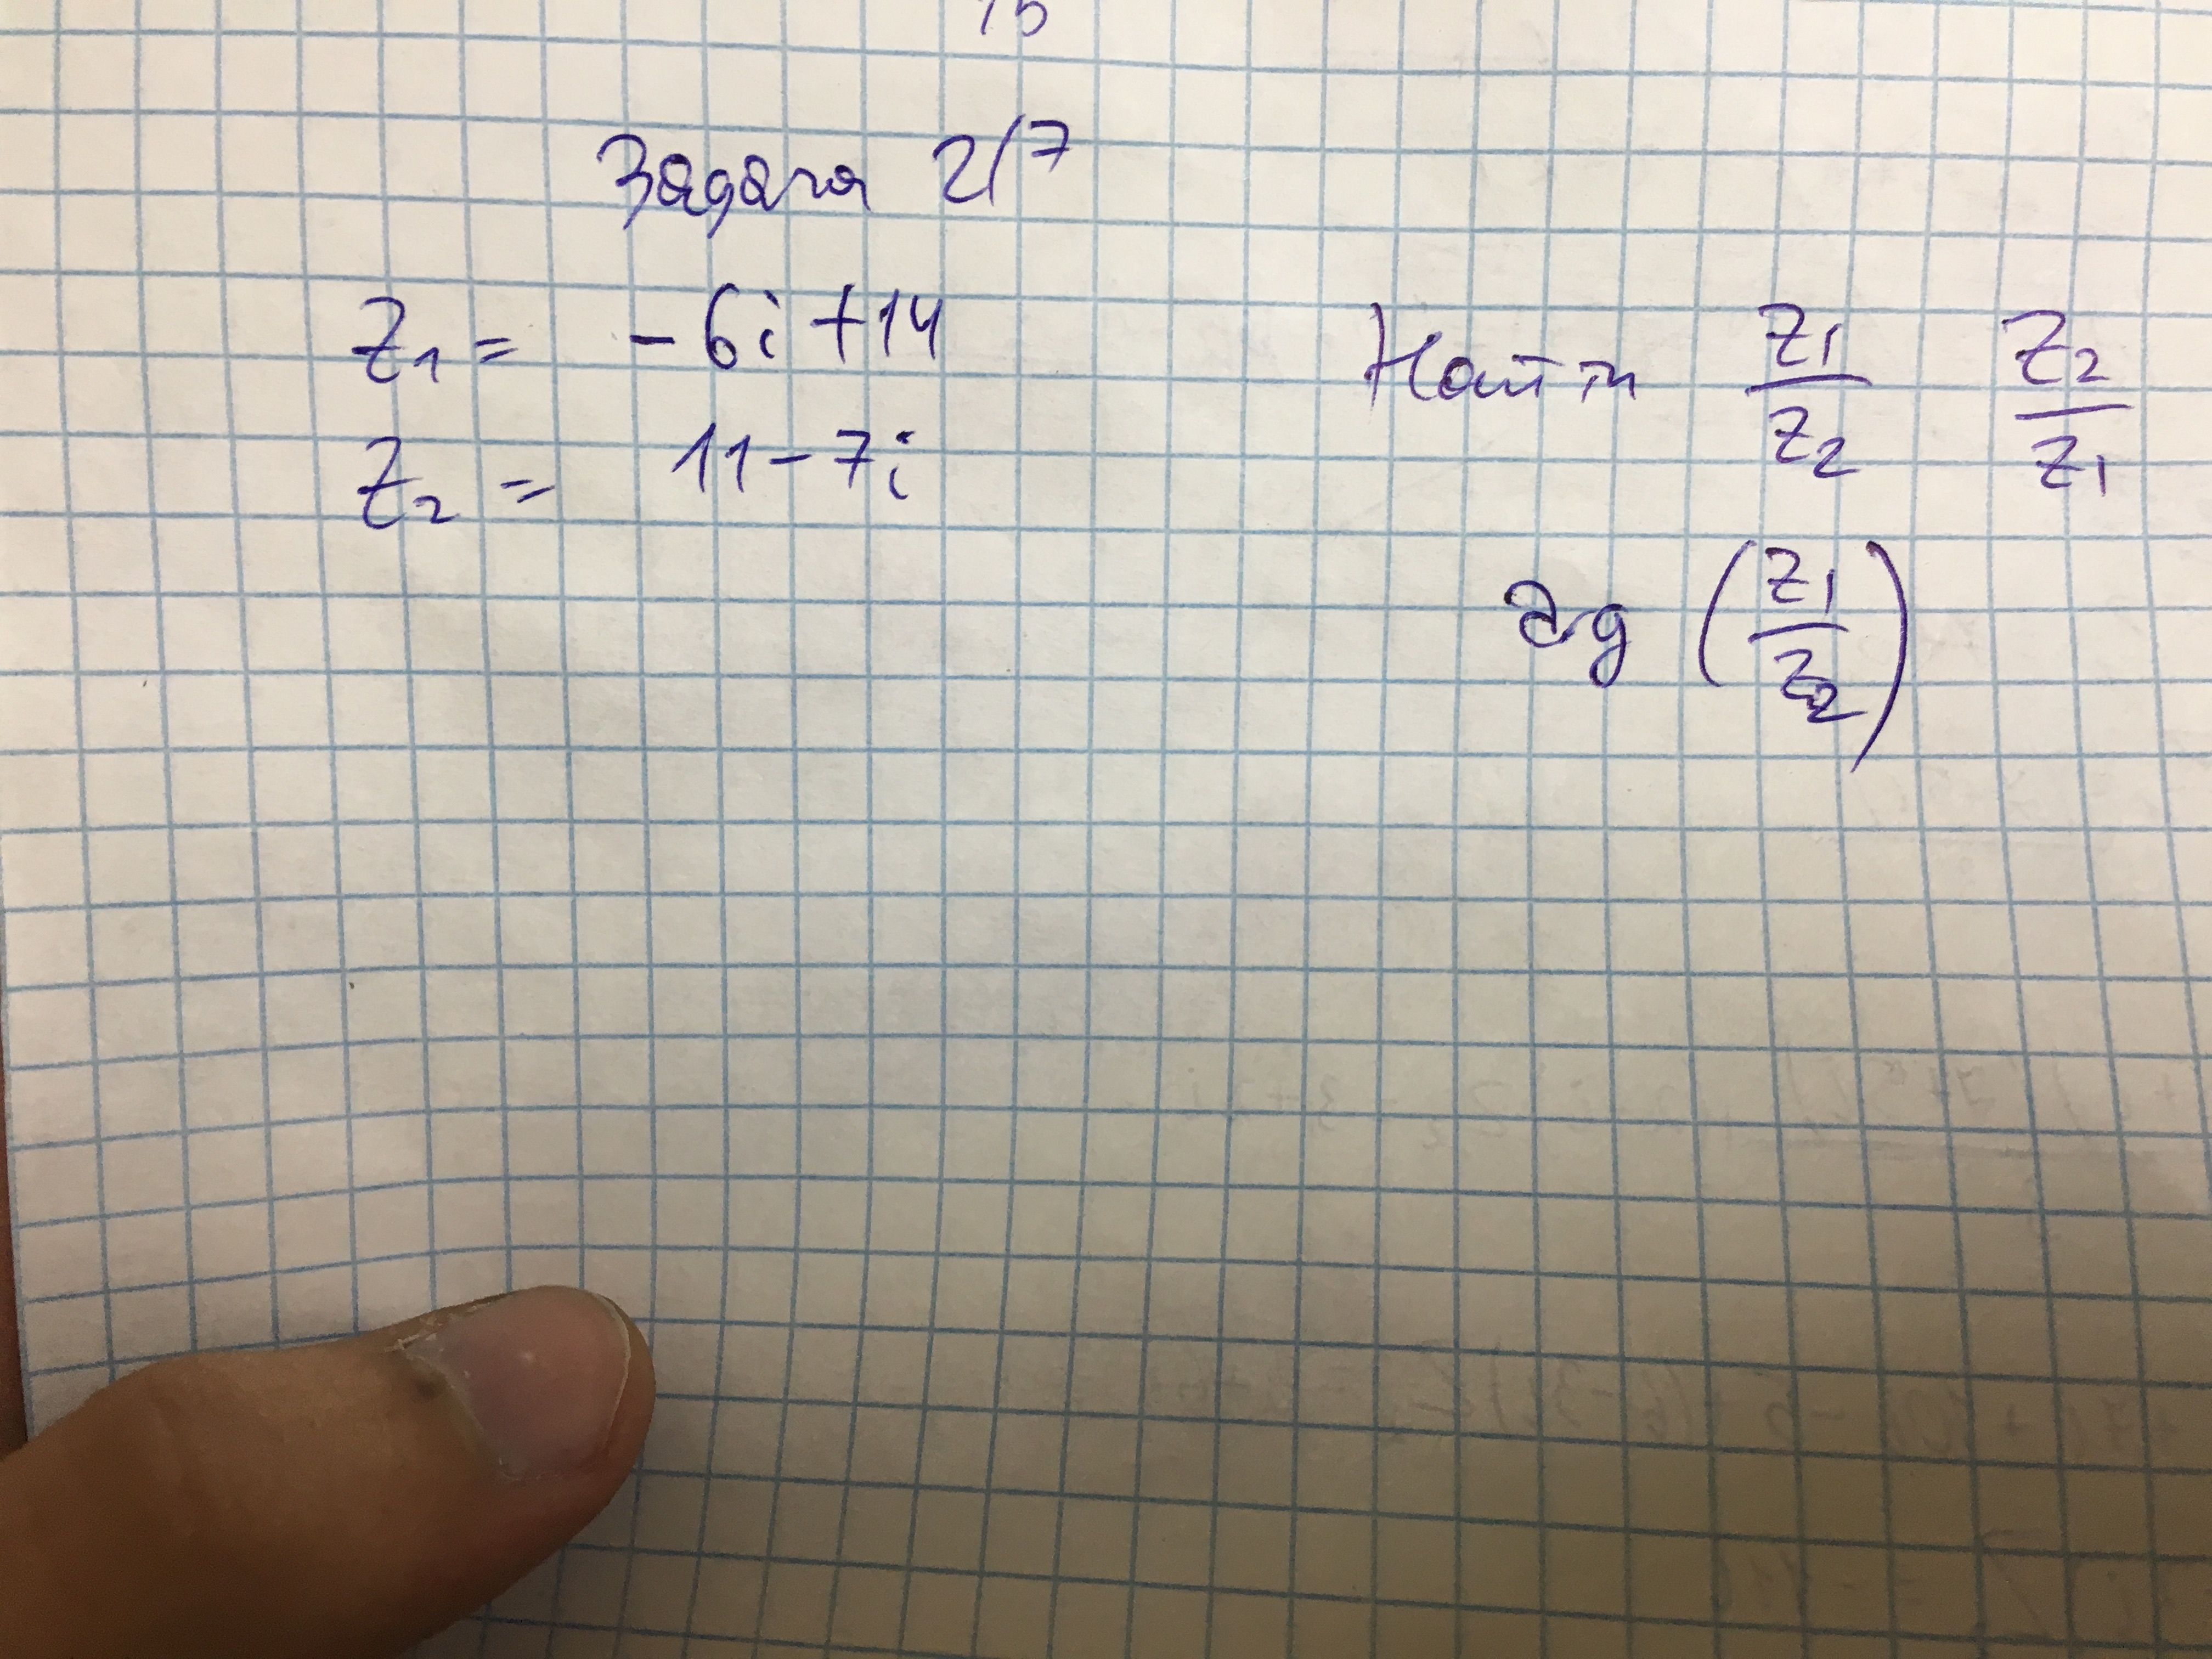 15
Задача 2/7
z₁ = -6i + 14
z₂ = 11 - 7i
Найти z₁/z₂ z₂/z₁
arg (z₁/z₂)